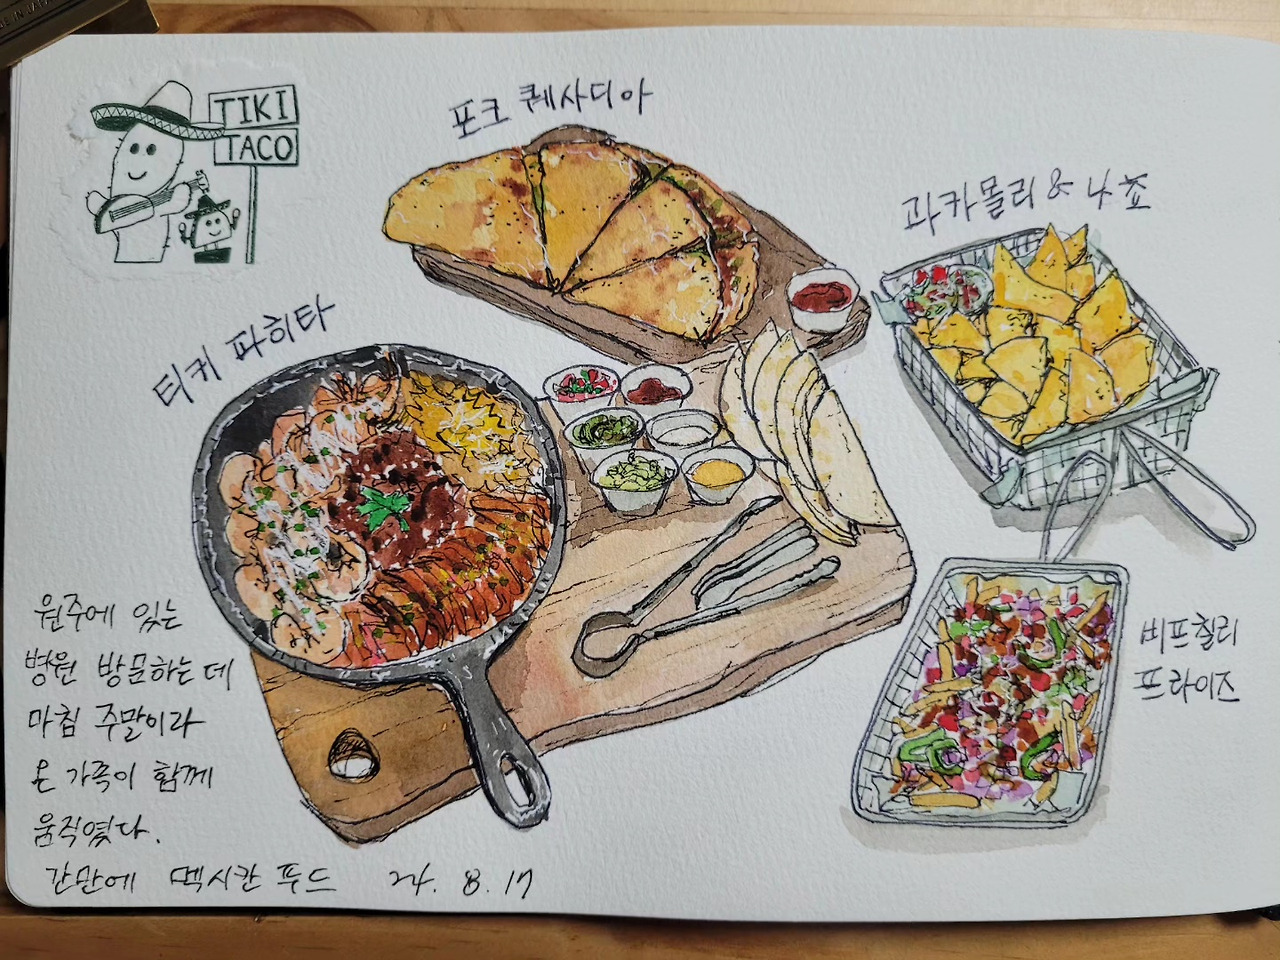 TIKI
TACO
포크 퀘사디아
과카몰리 & 나쵸
티키 파히타
비프칠리
프라이즈
원주에 있는
병원 방문하는데
마침 주말이라
온 가족이 함께
움직였다.
간만에 멕시칸 푸드 24. 8. 17